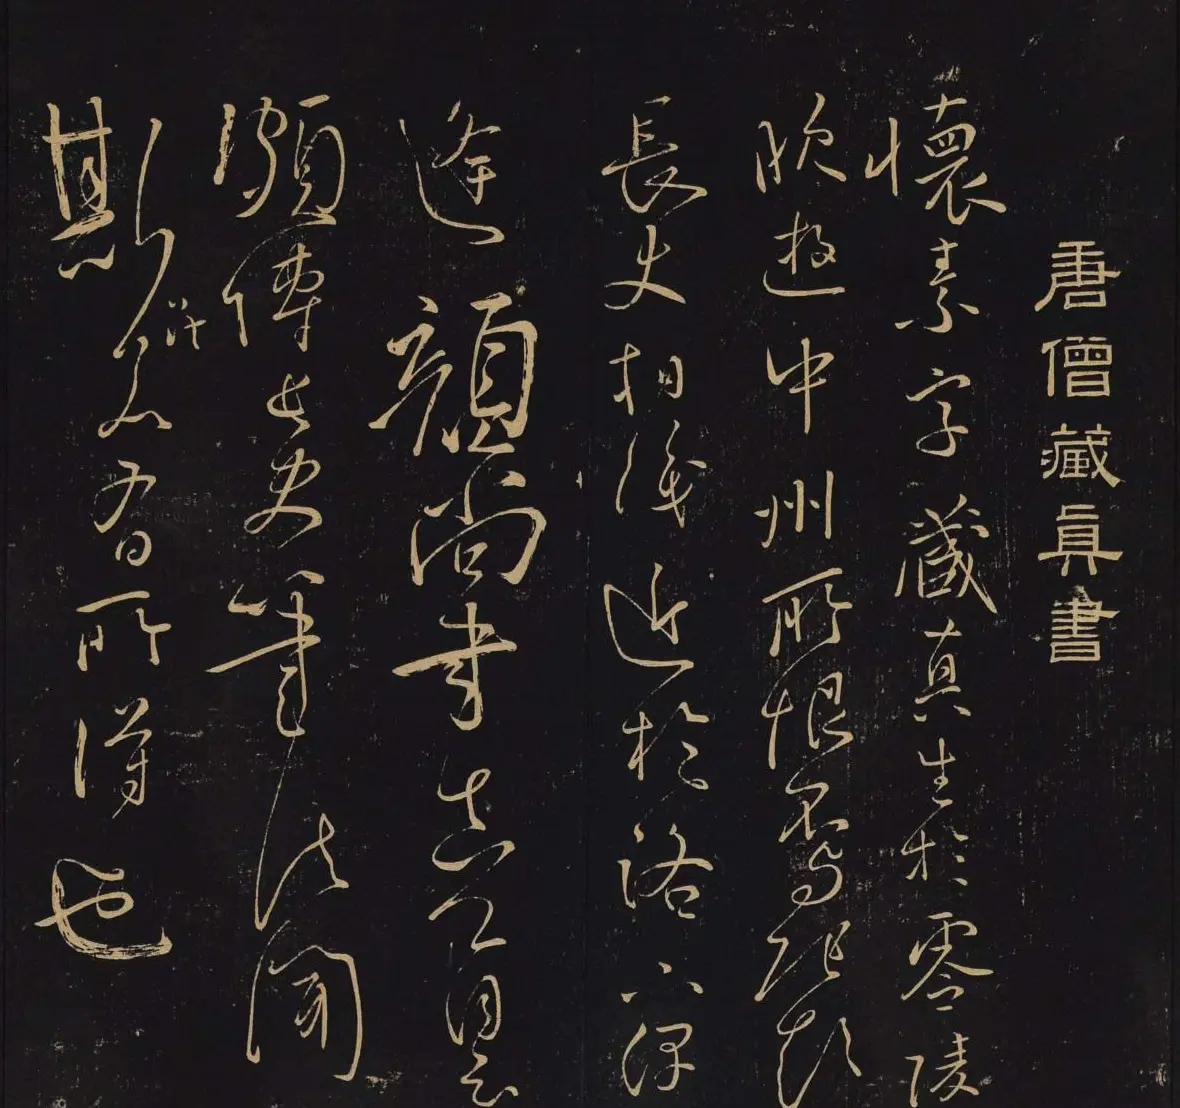 唐僧藏真書
懷素字藏真生於零陵
晚遊中州所恨不與張顛
長史相識近於洛下偶
逢顏尚書真卿自云
頗傳長史筆法聞
斯法若有所得也